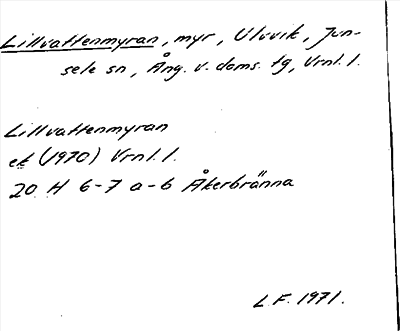 Lillvattenmyran, myr, Ulvvik, Jun-
sele sn, Ång. v. doms. tg, Vrnl. l.
Lillvattenmyran
ek (1970) Vrnl. l.
20 H 6-7 a-b Åkerbränna
L.F. 1971.